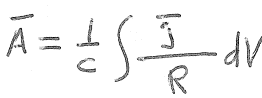 A̅ = 1/c ∫ j̅/R dV